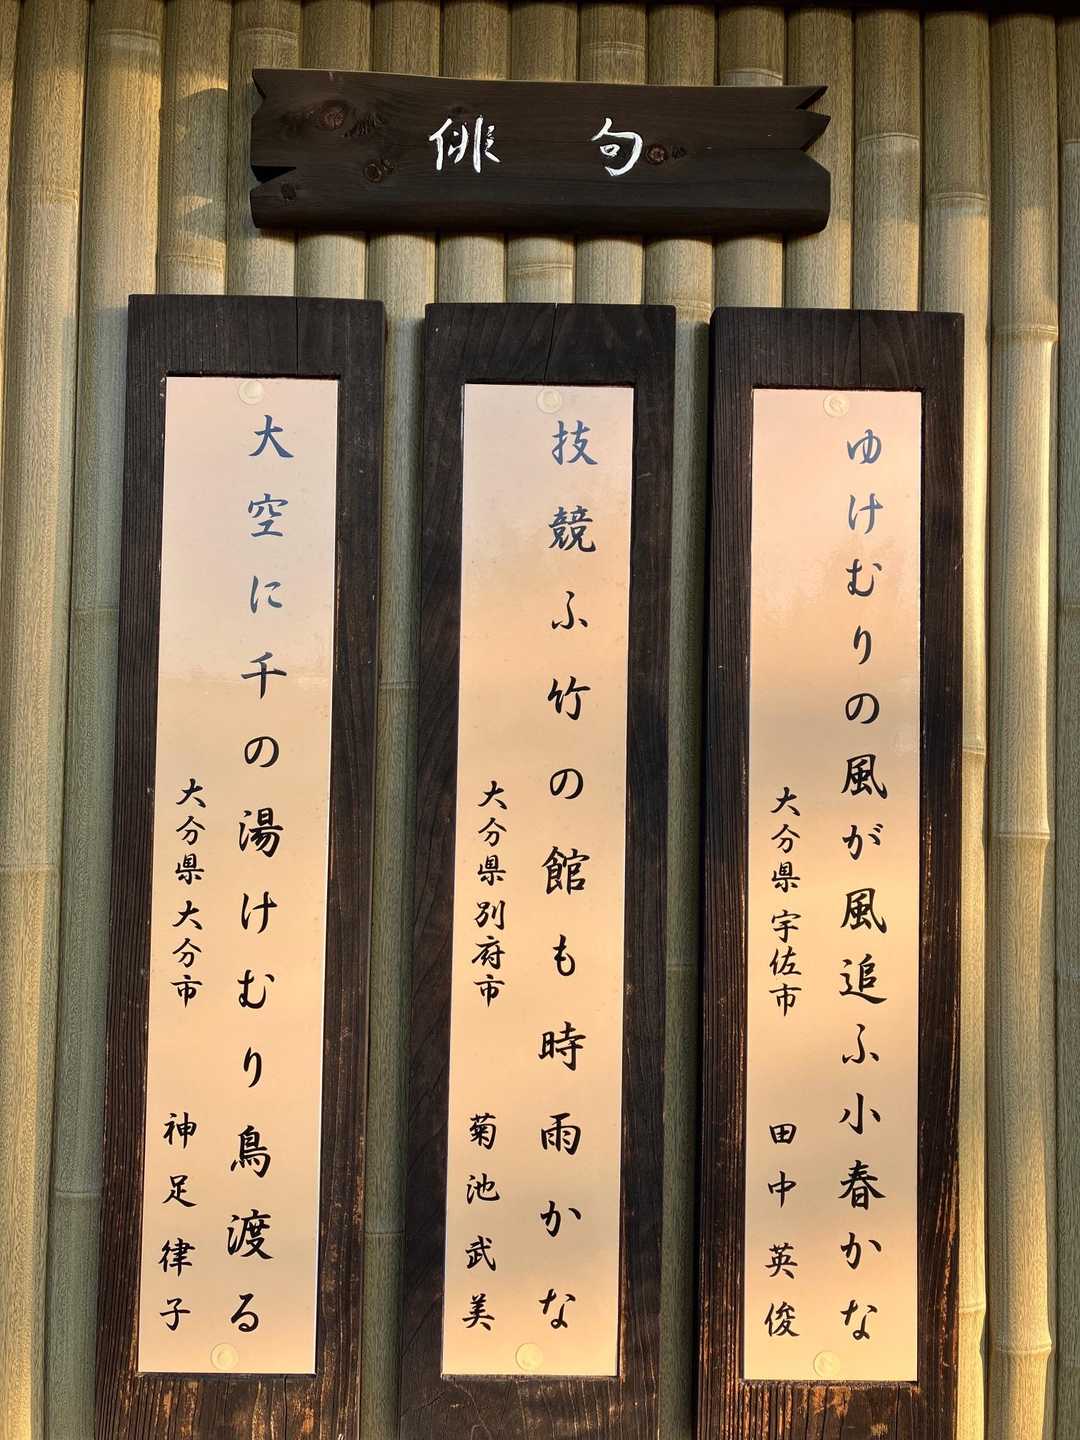 俳句
ゆけむりの風が風追ふ小春かな
大分県宇佐市 田中英俊
技競ふ竹の館も時雨かな
大分県別府市 菊池武美
大空に千の湯けむり鳥渡る
大分県大分市 神足律子